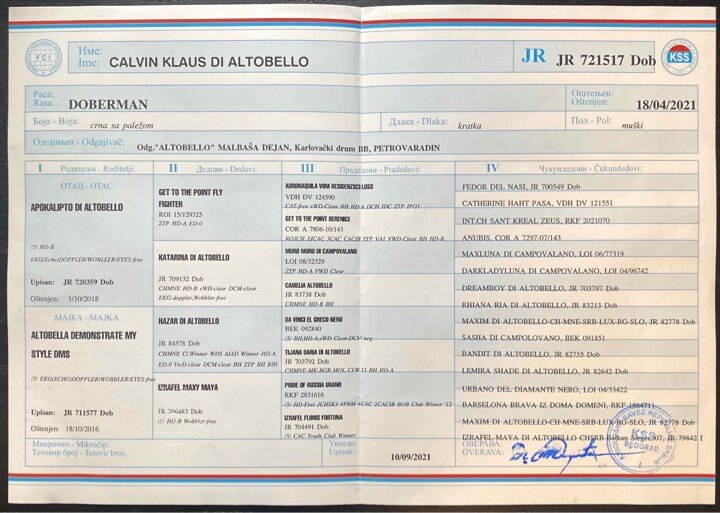 FCI
Име:
Ime: CALVIN KLAUS DI ALTOBELLO
JR JR 721517 Dob
KSS
Раса:
Rasa: DOBERMAN
Оштењен:
Oštenjen: 18/04/2021
Боја - Boja: crna sa paležom
Длака - Dlaka: kratka
Пол - Pol: muški
Одгајивач - Odgajivač: Odg."ALTOBELLO" MALBAŠA DEJAN, Karlovački drum BB, PETROVARADIN
I Родитељи - Roditelji:
ОТАЦ - OTAC
APOKALIPTO DI ALTOBELLO
/5/ HD-B
EKG(Echo)DOPPLER/WOBLER/EYES free
Upisan: JR 720359 Dob
Oštenjen: 1/10/2018
МАЈКА - MAJKA
ALTOBELLA DEMONSTRATE MY
STYLE DMS
/5/ EKG(ECHO)DOPPLER/WOBLER/EYES-free
Upisan: JR 711577 Dob
Oštenjen: 18/10/2016
II Дедови - Dedovi:
GET TO THE POINT FLY
FIGHTER
ROI 15/129325
ZTP HD-A ED-0
KATARINA DI ALTOBELLO
JR 709132 Dob
CHMNE HD-B vWD-clear DCM-clear
EKG-doppler,Wobbler free
HAZAR DI ALTOBELLO
JR 84578 Dob
CHMNE CI.Winner WDS AJAD Winner HD-A
ED-0 vWD-clear DCM-clear BH ZTP BH BIH
IZRAFEL MAXY MAYA
JR 706483 Dob
/5/ HD-B Wobbler-free
III Прадедови - Pradedovi:
AURONAQUILA VOM RESIDENZSCHLOSS
VDH DV 124590
CAT-free vWD-Clear BH HD-A DCH IDC ZTP IPO1
GET TO THE POINT GERENICE
COR A 7806-10/143
ROJCH 3JCAC 3CAC CACIB ZTP VA1 VWD-Clear BH HD-B
MURO MURO DI CAMPOVALANO
LOI 08/32329
ZTP HD-A VWD Clear
CAMELIA ALTOBELLO
JR 83738 Dob
CHMNE HD-B BH
DA VINCI EL GRECO NERO
BEK 092840
/5/ BH,HD-A,vWD-Clear,DCM neg
TIJANA DARIA DI ALTOBELLO
JR 703792 Dob
CHMNE-MK-BGR-MOL CI.W11 BH HD-A
PRIDE OF RUSSIA URANO
RKF 2831616
/5/ HD-Frei JCHSKJ 4PRM 4CAC 2CACIB BOB Club Winer '12
IZRAFEL FLORIS FORTUNA
JR 704491 Dob
/5/ CAC Youth Club Winner
IV Чукундедови - Čukundedovi:
FEDOR DEL NASI, JR 700549 Dob
CATHERINE HAHT PASA, VDH DV 121551
INT.CH SANT KREAL ZEUS, RKF 2021070
ANUBIS, COR A 7297-07/143
MAXLUNA DI CAMPOVALANO, LOI 06/77319
DARKLADYLUNA DI CAMPOVALANO, LOI 04/96742
DREAMBOY DI ALTOBELLO, JR 703797 Dob
RHIANA RIA DI ALTOBELLO, JR 83213 Dob
MAXIM DI ALTOBELLO-CH-MNE-SRB-LUX-BG-SLO, JR 82778 Dob
SASHA DI CAMPOLOVANO, BEK 091851
BANDIT DI ALTOBELLO, JR 82755 Dob
LEMIRA SHADE DI ALTOBELLO, JR 82642 Dob
URBANO DEL DIAMANTE NERO, LOI 04/53422
BARSELONA BRAVA IZ DOMA DOMENI, RKF 1864711
MAXIM DI ALTOBELLO-CH-MNE-SRB-LUX-BG-SLO, JR 82778 Dob
IZRAFEL MAYA DI ALTOBELLO CHSRB Balkan Sieger307, JR 79842 I
Микрочип - Mikročip:
Тетовир број - Tetovir broj:
Уписан:
Upisan: 10/09/2021
ОВЕРАВА:
OVERAVA:
KINOLOŠKI SAVEZ REPUBLIKE SRBIJE
KSS
BEOGRAD